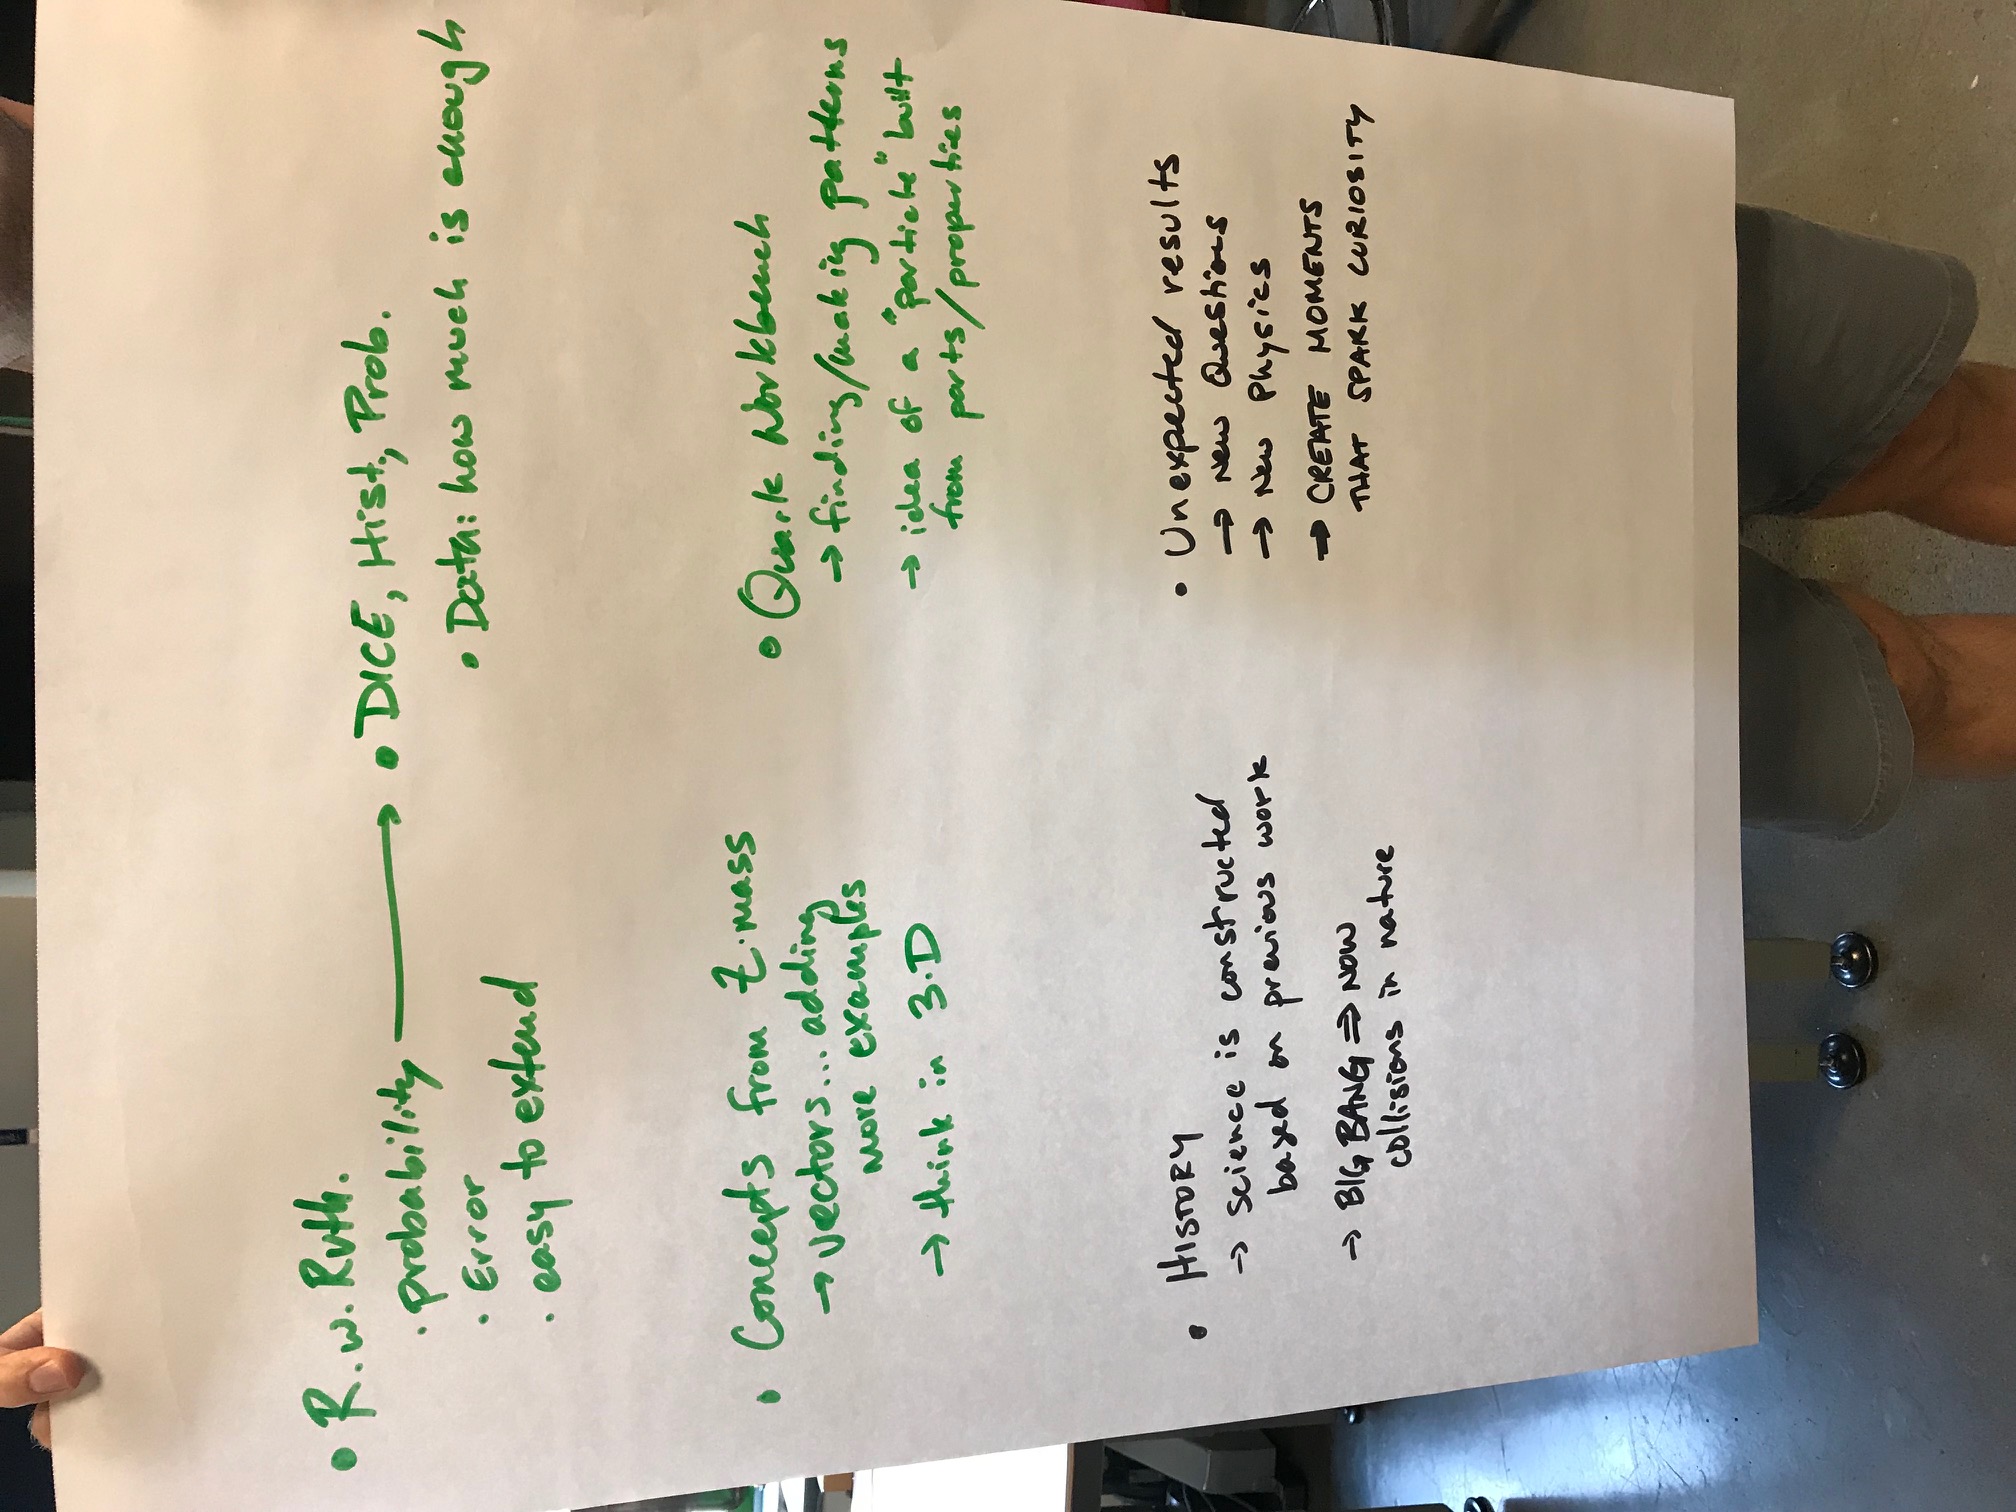 • R.w.Ruth.
· probability → • DICE, Hist., Prob.
· Error
· easy to extend
• Data: how much is enough
• Concepts from Z-mass
→ vectors... adding
more examples
→ think in 3-D
• Quark Workbench
→ finding/making patterns
→ idea of a "particle" built
from parts/properties
• HISTORY
→ science is constructed
based on previous work
→ BIG BANG ⇒ NOW
collisions in nature
• Unexpected results
→ New Questions
→ New Physics
→ CREATE MOMENTS
THAT SPARK CURIOSITY